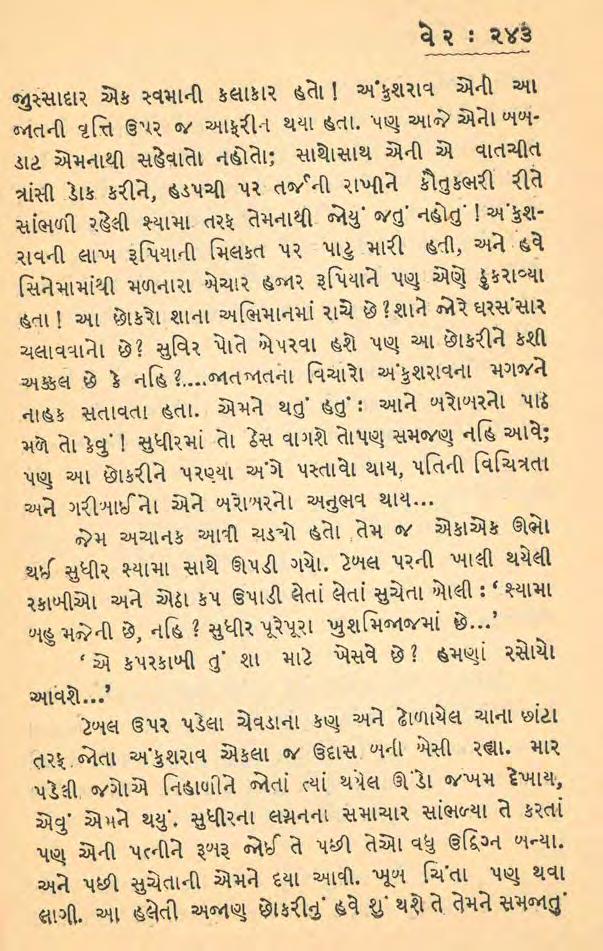 વેર : ૨૪૩
જુસ્સાદાર એક સ્વમાની કલાકાર હતો ! અંકુશરાવ એની આ
જાતની વૃત્તિ ઉપર જ આફરીન થયા હતા. પણ આજે એનો બબ-
ડાટ એમનાથી સહેવાતો નહોતો; સાથોસાથ એની એ વાતચીત
ત્રાંસી ડોક કરીને, હડપચી પર તર્જની રાખીને કૌતુકભરી રીતે
સાંભળી રહેલી શ્યામા તરફ તેમનાથી જોયું જતું નહોતું ! અંકુશ-
રાવની લાખ રૂપિયાની મિલકત પર પાટુ મારી હતી, અને હવે
સિનેમામાંથી મળનારા બેચાર હજાર રૂપિયાને પણ એણે ઠુકરાવ્યા
હતા ! આ છોકરો શાના અભિમાનમાં રાચે છે ? શાને જોરે ઘરસંસાર
ચલાવવાનો છે ? સુવિર પોતે બેપરવા હશે પણ આ છોકરીને કશી
અક્કલ છે કે નહિ ?....જાતજાતના વિચારો અંકુશરાવના મગજને
નાહક સતાવતા હતા. એમને થતું હતું : આને બરોબરનો પાઠ
મળે તો કેવું ! સુધીરમાં તો ઠેસ વાગશે તોપણ સમજણ નહિ આવે;
પણ આ છોકરીને પરણ્યા અંગે પસ્તાવો થાય, પતિની વિચિત્રતા
અને ગરીબાઈનો એને બરોબરનો અનુભવ થાય...
જેમ અચાનક આવી ચડ્યો હતો તેમ જ એકાએક ઊભો
થઈ સુધીર શ્યામા સાથે ઊપડી ગયો. ટેબલ પરની ખાલી થયેલી
રકાબીઓ અને એઠા કપ ઉપાડી લેતાં લેતાં સુચેતા બોલી : ‘ શ્યામા
બહુ મજેની છે, નહિ ? સુધીર પૂરેપૂરા ખુશમિજાજમાં છે...’
‘ એ કપરકાબી તું શા માટે ખેસવે છે ? હમણાં રસોયો
આવશે...’
ટેબલ ઉપર પડેલા ચેવડાના કણ અને ઢોળાયેલ ચાના છાંટા
તરફ જોતા અંકુશરાવ એકલા જ ઉદાસ બની બેસી રહ્યા. માર
પડેલી જગોએ નિહાળીને જોતાં ત્યાં થયેલ ઊંડો જખમ દેખાય,
એવું એમને થયું. સુધીરના લગ્નના સમાચાર સાંભળ્યા તે કરતાં
પણ એની પત્નીને રૂબરૂ જોઈ તે પછી તેઓ વધુ ઉદ્વિગ્ન બન્યા.
અને પછી સુચેતાની એમને દયા આવી. ખૂબ ચિંતા પણ થવા
લાગી. આ હલેતી અજાણ છોકરીનું હવે શું થશે તે તેમને સમજાતું